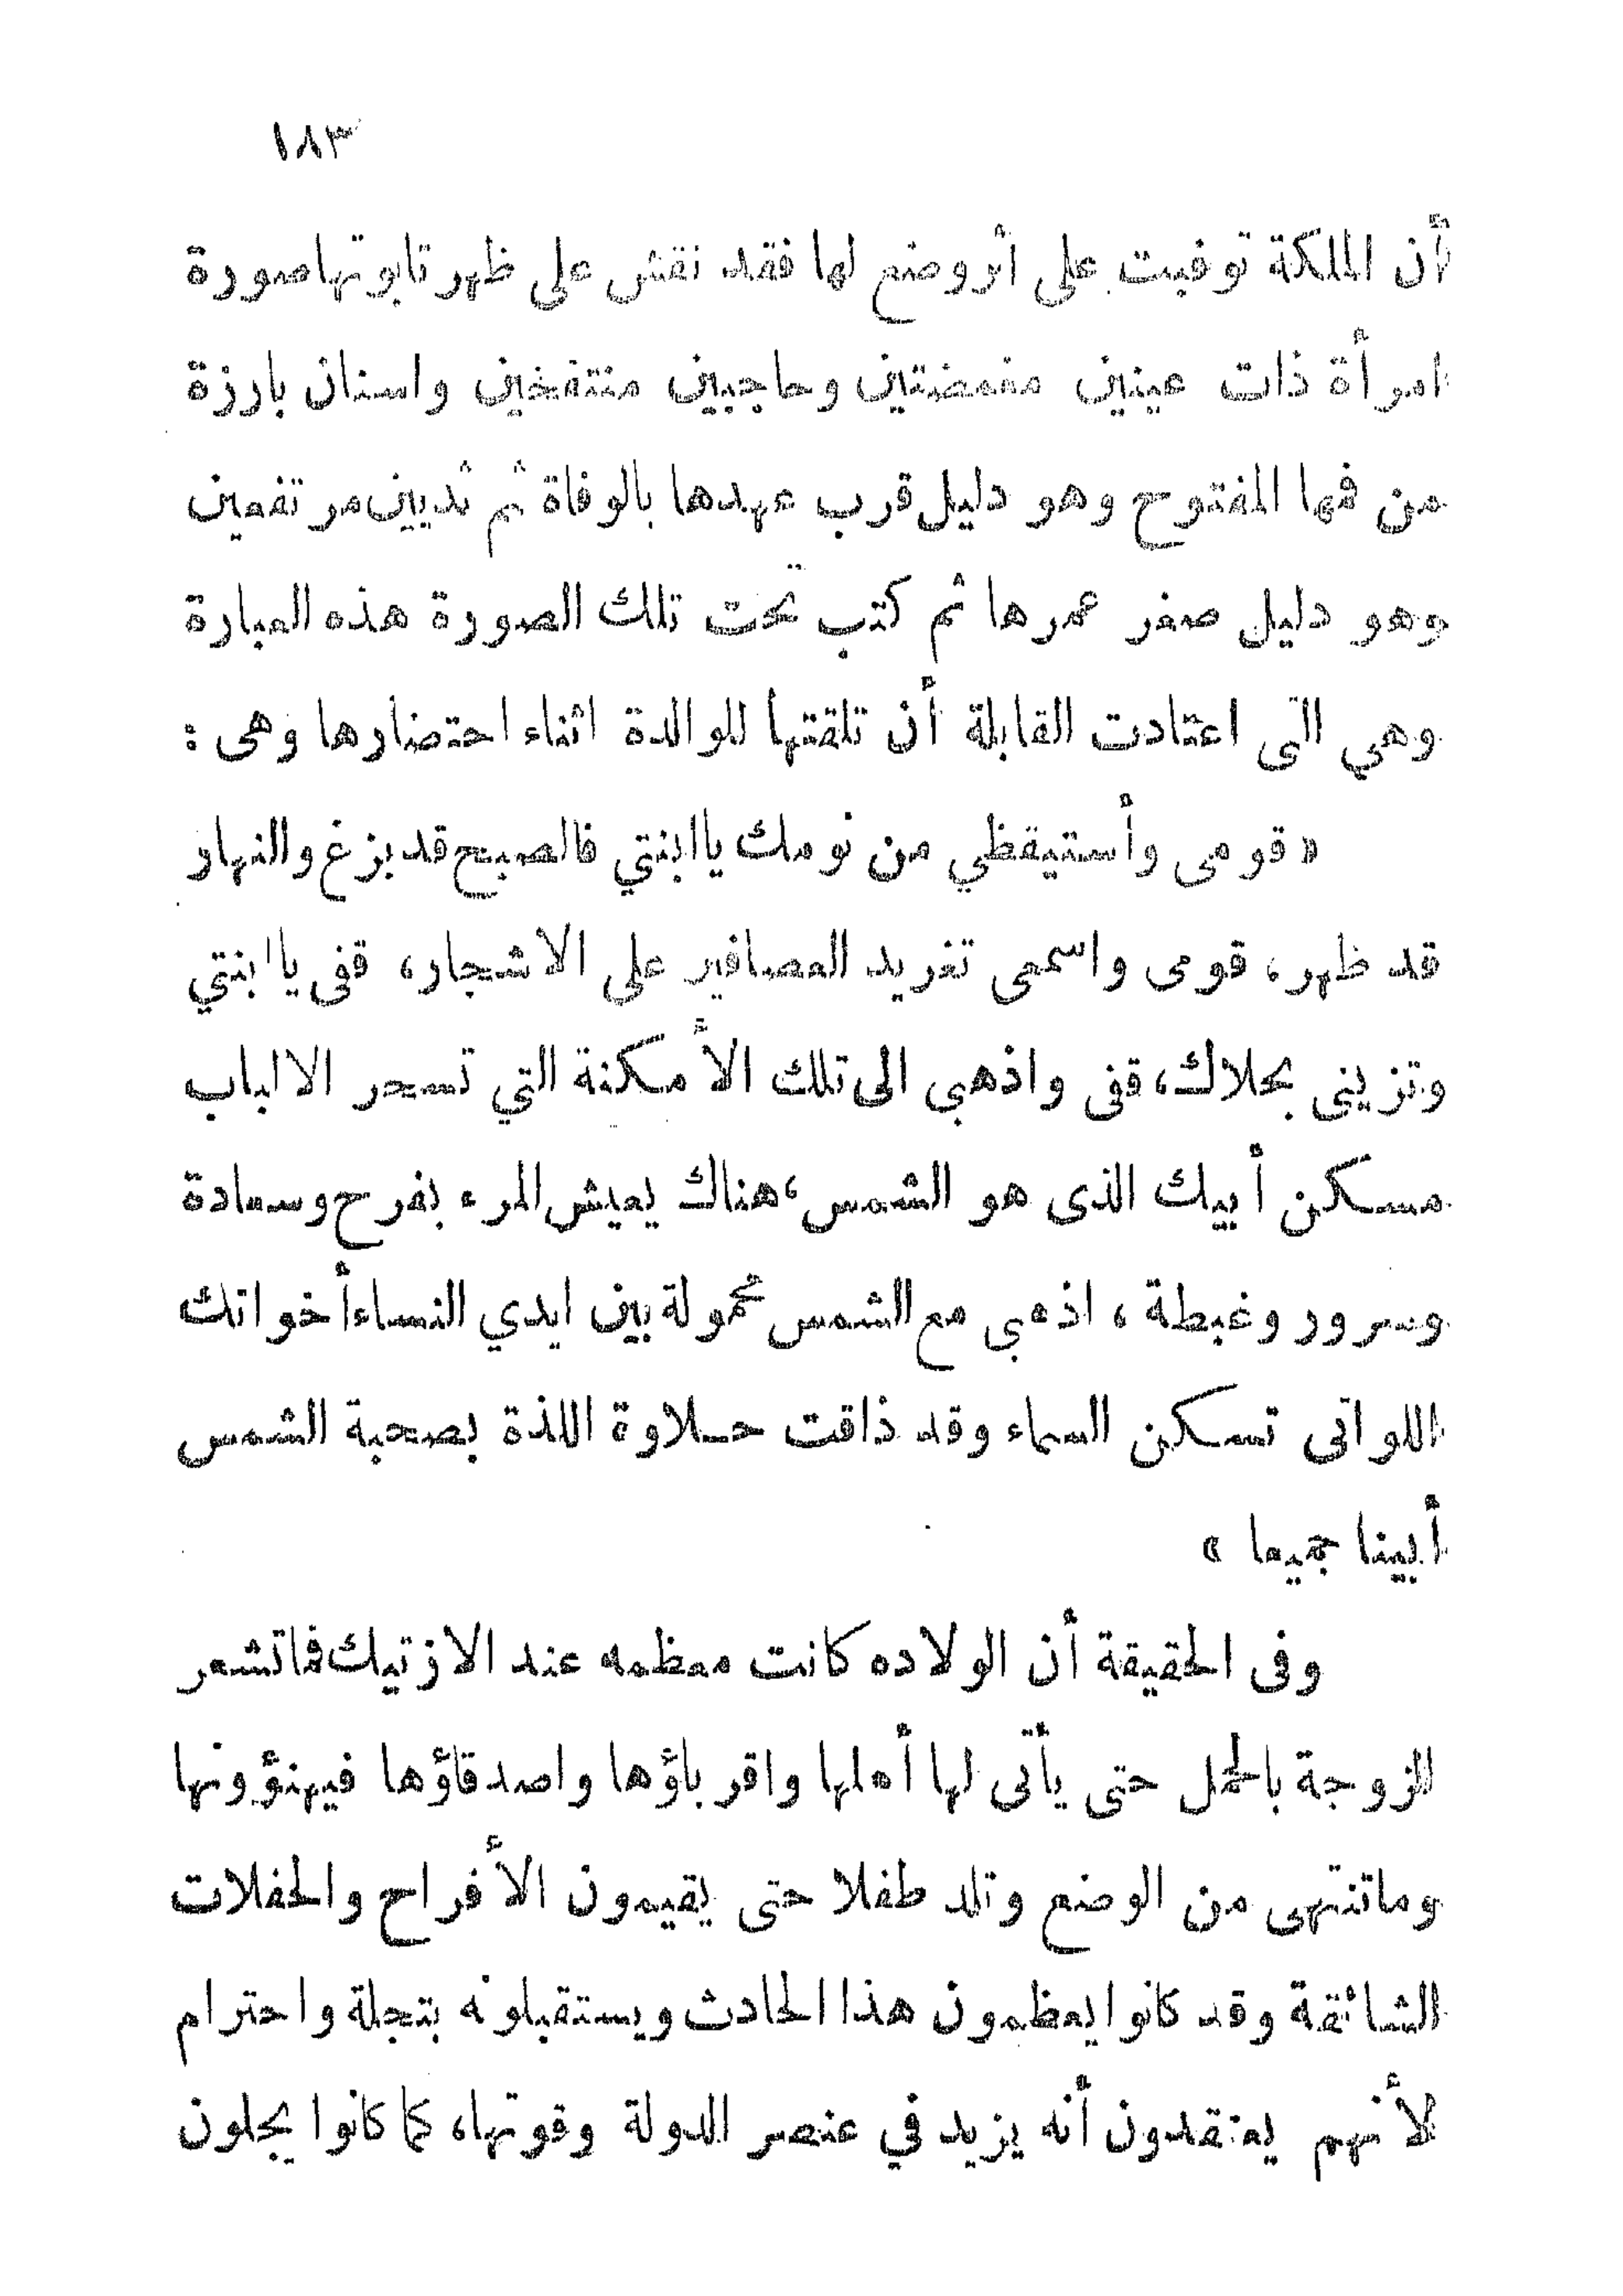 ١٨٣
أن الملكة توفيت على أثر وضع لها فقد نقش على ظهر تابوتها صورة
امرأة ذات عينين مغمضتين وحاجبين منتفخين واسنان بارزة
من فمها المفتوح وهو دليل قرب عهدها بالوفاة ثم ثديين مرتفعين
وهو دليل صغر عمرها ثم كتب تحت تلك الصورة هذه العبارة
وهي التى اعتادت القابلة أن تلقنها للوالدة اثناء احتضارها وهى :
« قومى وأستيقظي من نومك ياابنتي فالصبح قد بزغ والنهار
قد ظهر، قومى واسمعى تغريد العصافير على الاشجار، قفى يا ابنتي
وتزينى بحلاك، قفى واذهبي الى تلك الأمكنة التي تسحر الالباب
مسكن أبيك الذى هو الشمس، هناك يعيش المرء بفرح وسعادة
وسرور وغبطة ، اذهبي مع الشمس محمولة بين ايدي النساء أخواتك
اللواتى تسكن السماء وقد ذاقت حلاوة اللذة بصحبة الشمس
أبينا جميعا »
وفى الحقيقة أن الولاده كانت معظمه عند الازتيك فماتشعر
الزوجة بالحمل حتى يأتى لها أهلها واقرباؤها واصدقاؤها فيهنؤونها
وماتنتهى من الوضع وتلد طفلا حتى يقيمون الأفراح والحفلات
الشائقة وقد كانوا يعظمون هذا الحادث ويستقبلونه بتجلة واحترام
لأنهم يعتقدون أنه يزيد في عنصر الدولة وقوتها، كما كانوا يجلون